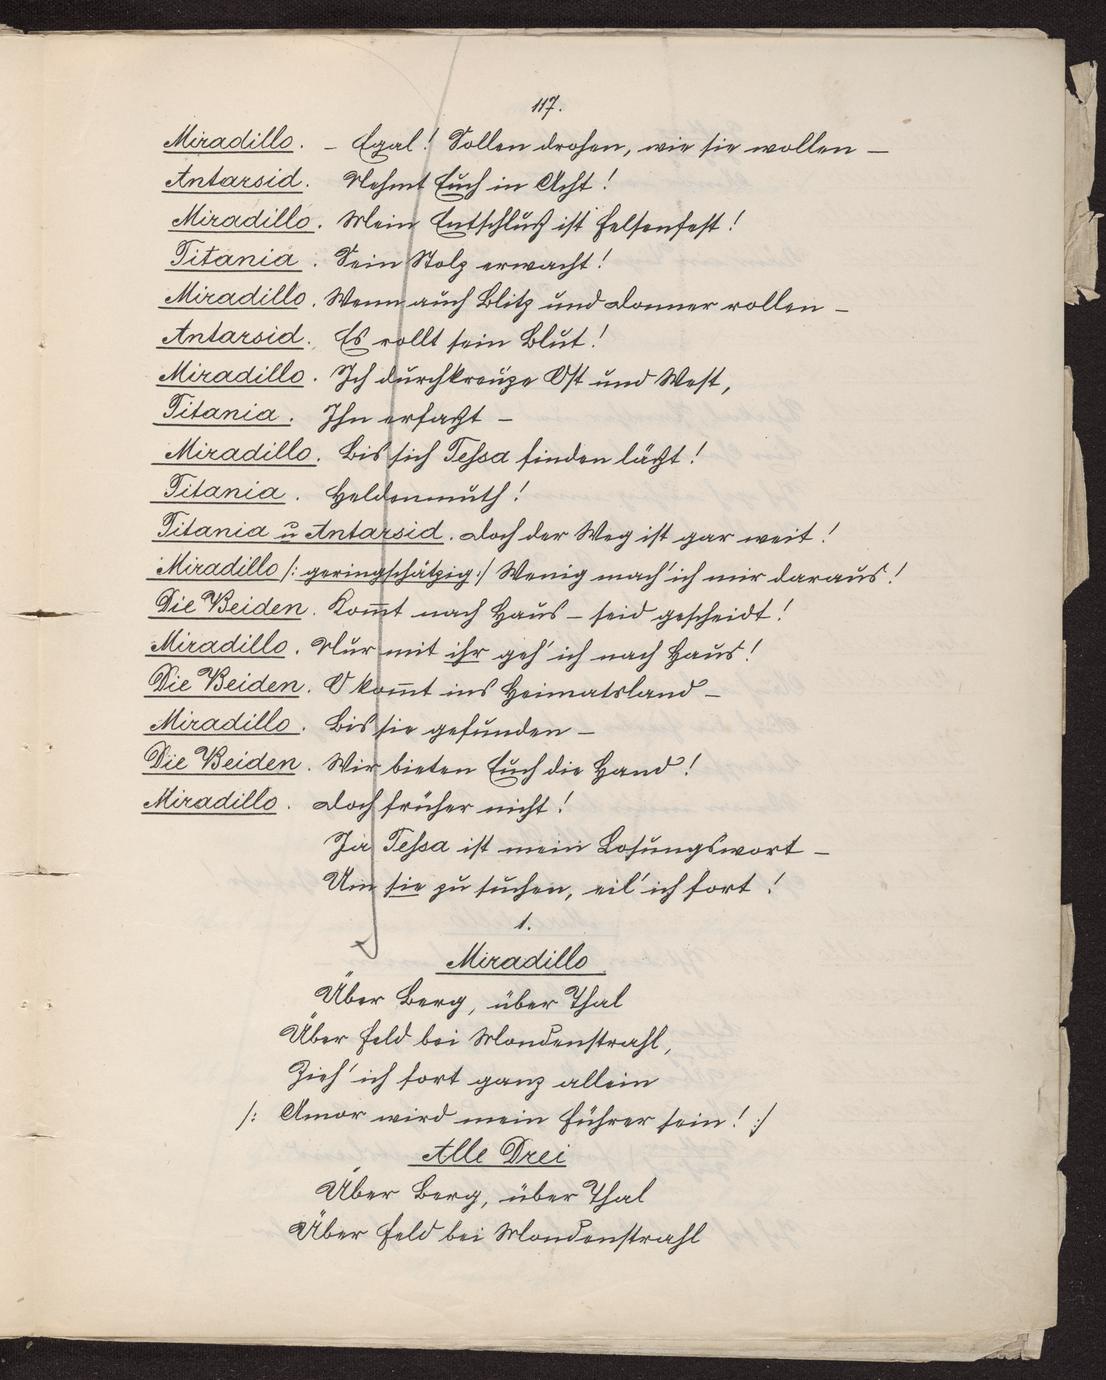 117.
Miradillo. – Egal! Sollen drohen, wie sie wollen –
Antarsid. Nehmt Euch in Acht!
Miradillo. Mein Entschluß ist felsenfest!
Titania. Sein Stolz erwacht!
Miradillo. Wenn auch Blitz und Donner rollen –
Antarsid. Es rollt sein Blut!
Miradillo. Ich durchkreuze Ost und West,
Titania. Ihn erfaßt –
Miradillo. Bis sich Tessa finden läßt!
Titania. Heldenmuth!
Titania u Antarsid. Doch der Weg ist gar weit!
Miradillo /: geringschätzig :/ Wenig mach' ich mir daraus!
Die Beiden. Kom̄t nach Haus – seid gescheidt!
Miradillo. Nur mit ihr geh' ich nach Haus!
Die Beiden. O kom̄t ins Heimatsland –
Miradillo. Bis sie gefunden –
Die Beiden. Wir bieten Euch die Hand!
Miradillo. Doch früher nicht!
Ja Tessa ist mein Losungswort –
Um sie zu suchen, eil' ich fort!
1.
Miradillo
Über Berg, über Thal
Über Feld bei Mondenstrahl,
Zieh' ich fort ganz allein
/: Amor wird mein Führer sein! :/
Alle Drei
Über Berg, über Thal
Über Feld bei Mondenstrahl